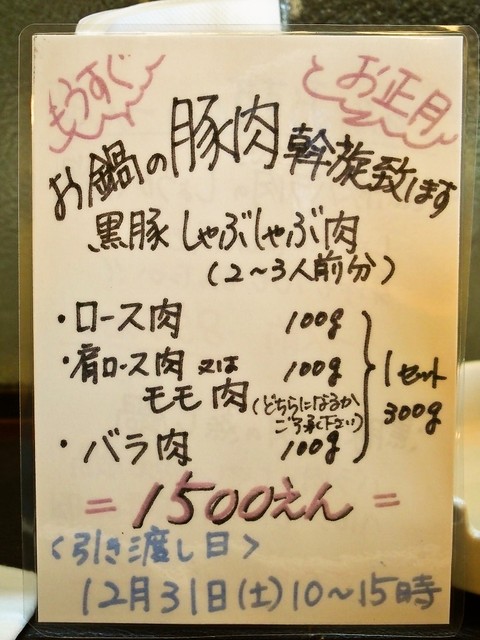 もうすぐ
お正月
お鍋の豚肉幹旋致します
黒豚 しゃぶしゃぶ肉
(2〜3人前分)
・ロース肉 100g
・肩ロース肉 又は 100g
モモ肉 (どちらになるか
ご了承下さい)
・バラ肉 100g
1セット
300g
= 1500えん =
<引き渡し日>
12月31日(土)10〜15時